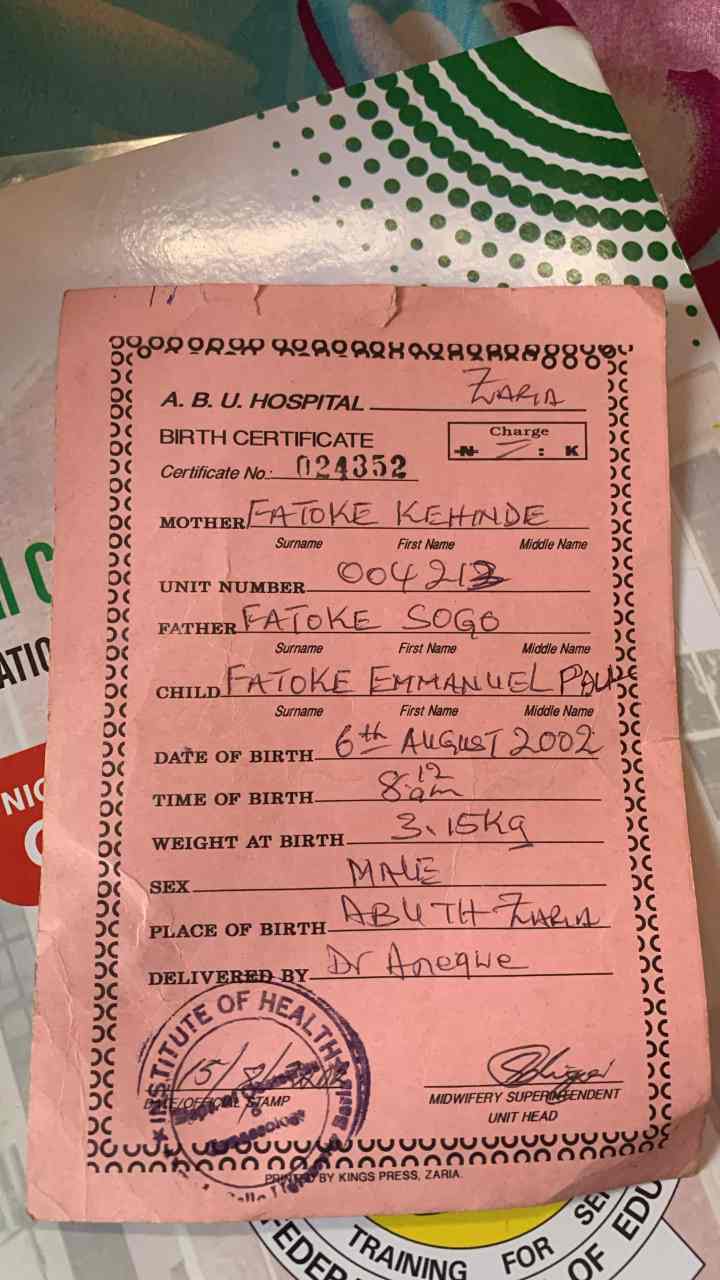 A. B. U. HOSPITAL ZARIA
BIRTH CERTIFICATE
Charge
Certificate No: 024352
N : K
MOTHER FATOKE KEHINDE
Surname First Name Middle Name
UNIT NUMBER 004213
FATHER FATOKE SOGO
Surname First Name Middle Name
CHILD FATOKE EMMANUEL PAUL
Surname First Name Middle Name
DATE OF BIRTH 6th AUGUST 2002
TIME OF BIRTH 8:12am
WEIGHT AT BIRTH 3.15Kg
SEX MALE
PLACE OF BIRTH ABUTH ZARIA
DELIVERED BY Dr
INSTITUTE OF HEALTH
15/8/
DATE/OFFICIAL STAMP
MIDWIFERY SUPERINTENDENT
UNIT HEAD
PRINTED BY KINGS PRESS, ZARIA.
NIC
TRAINING FOR
OF